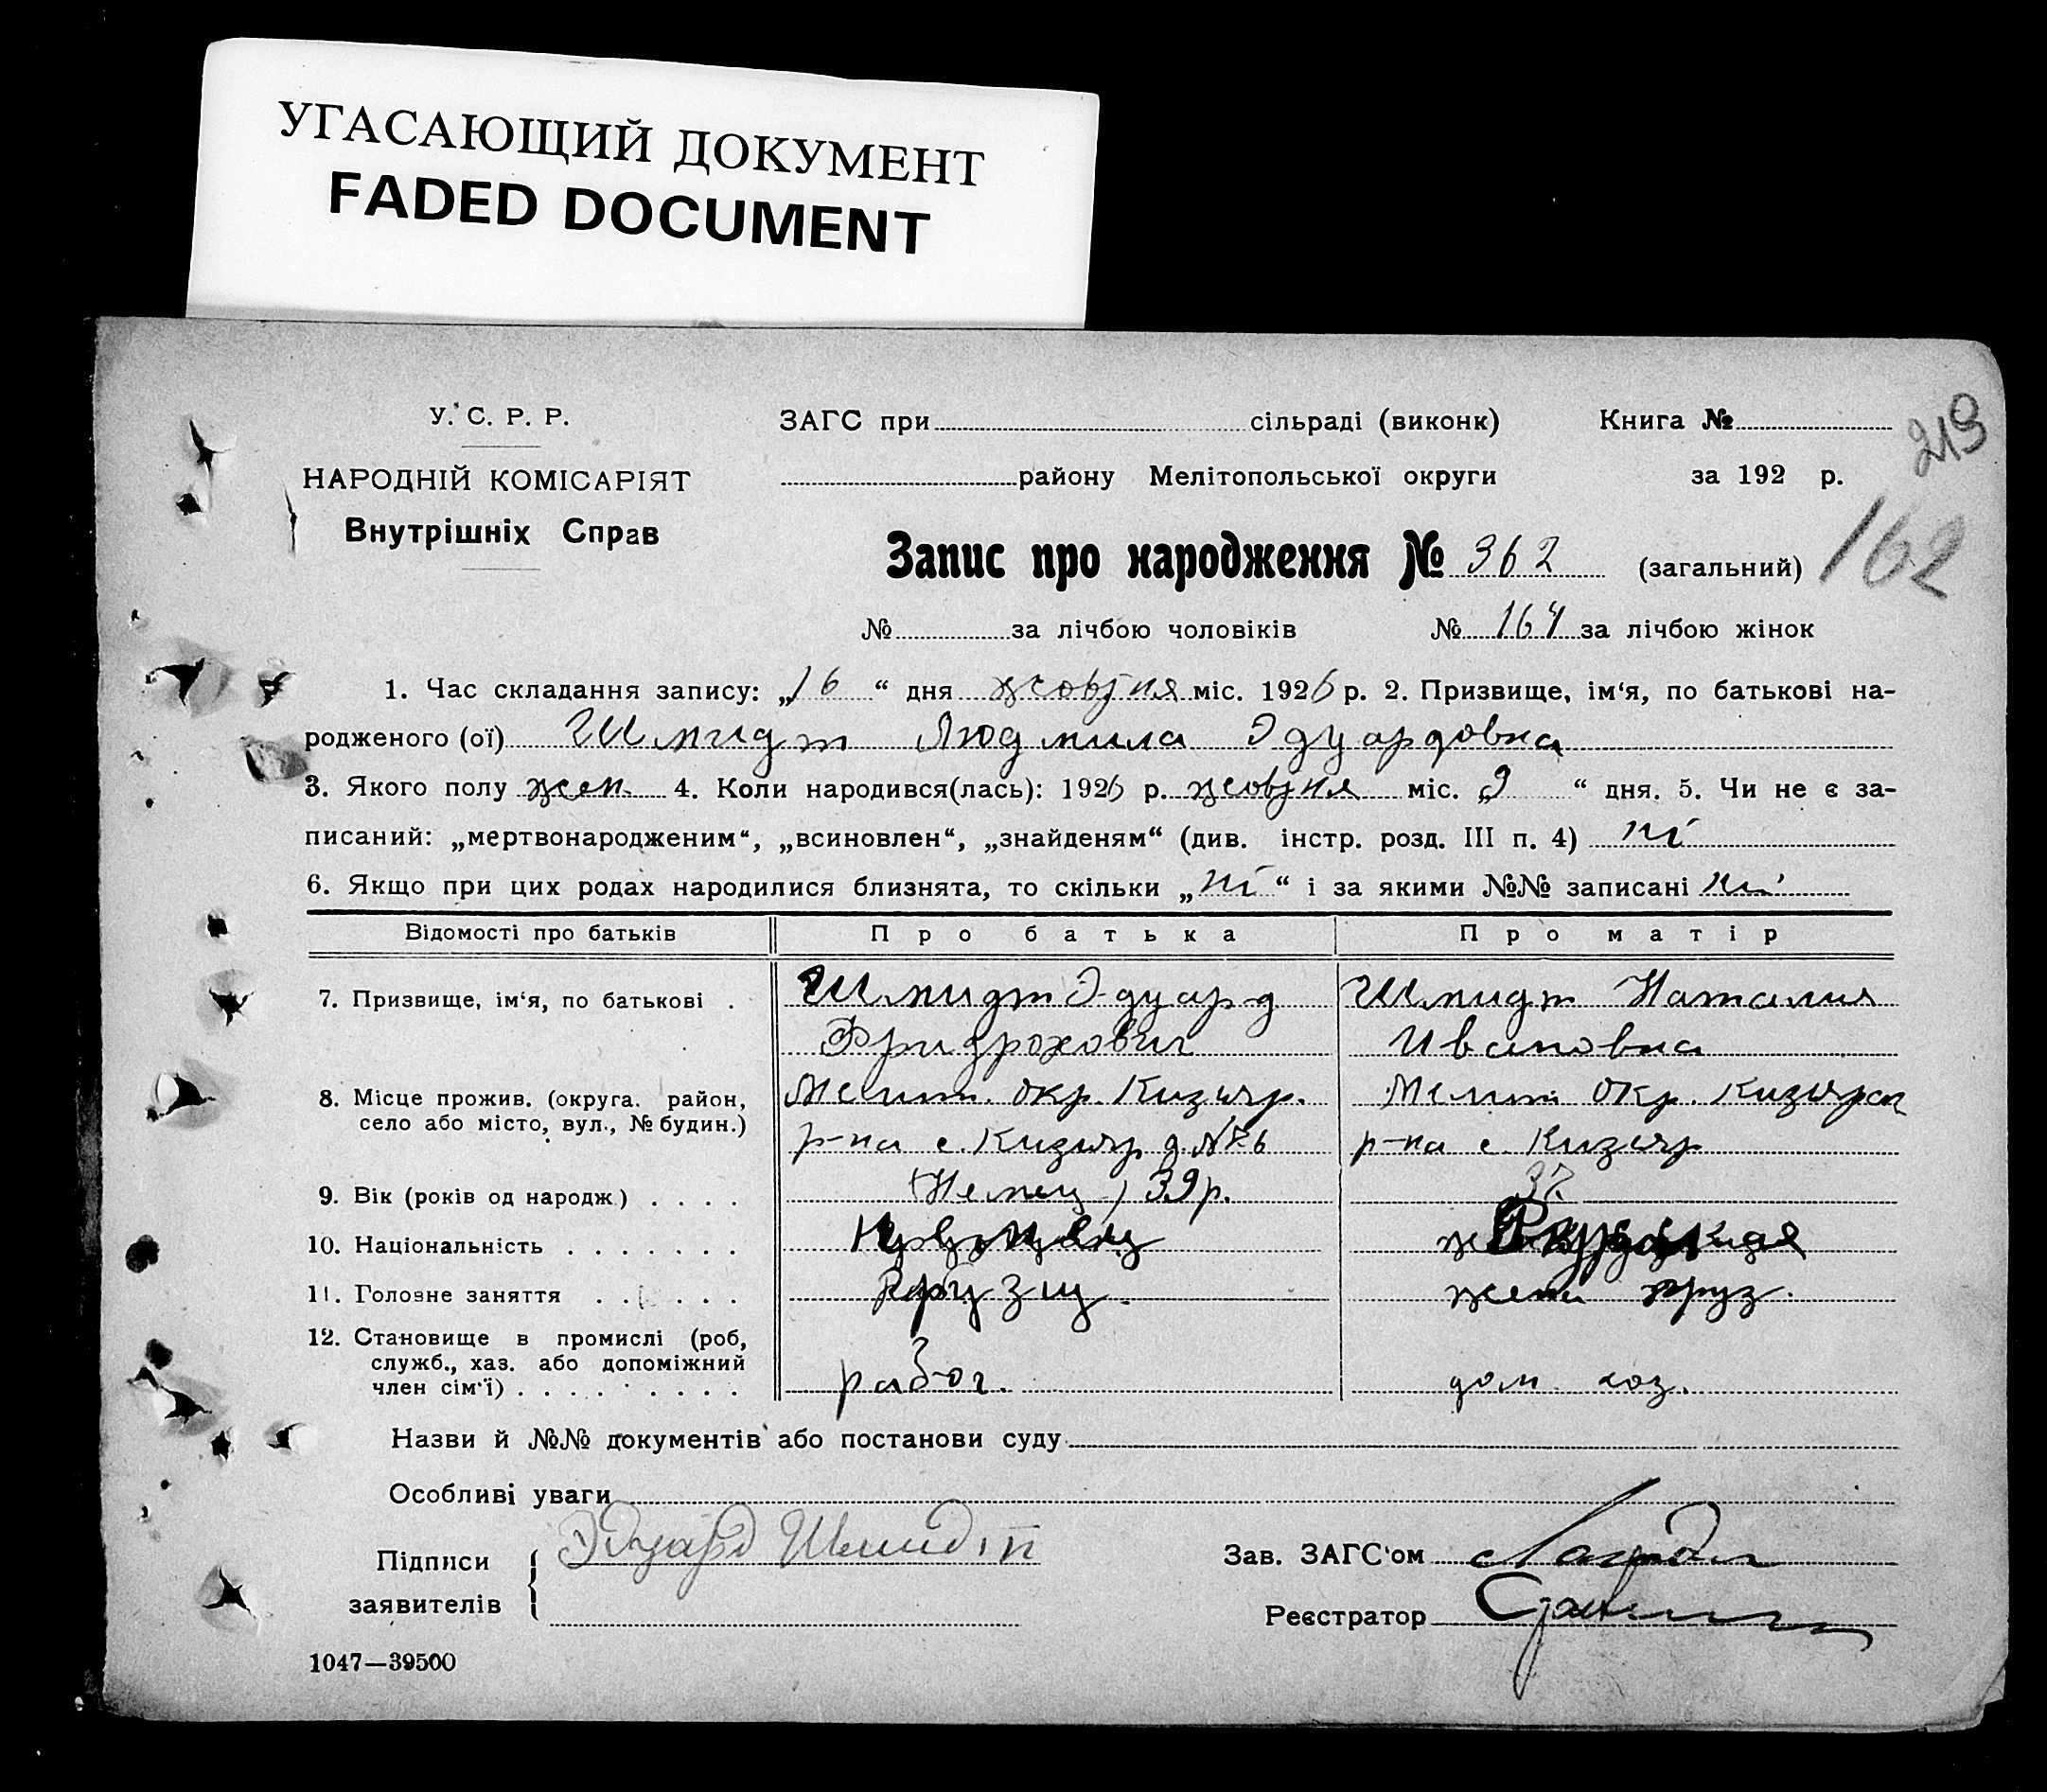 УГАСАЮЩИЙ ДОКУМЕНТ
FADED DOCUMENT
У. С. Р. Р.
НАРОДНІЙ КОМІСАРІЯТ
Внутрішніх Справ
ЗАГС при сільраді (виконк) Книга №
213
району Мелітопольської округи за 192 р.
Запис про народження № 362 (загальний)
162
№ за лічбою чоловіків № 164 за лічбою жінок
1. Час складання запису: „16“ дня жовтня міс. 1926 р. 2. Призвище, ім‘я, по батькові на-
родженого (ої) Шмидт Людмила Эдуардовна
3. Якого полу жен. 4. Коли народився(лась): 1926 р. жовтня міс. „9“ дня. 5. Чи не є за-
писаний: „мертвонародженим“, „всиновлен“, „знайденям“ (див. інстр. розд. III п. 4) ні
6. Якщо при цих родах народилися близнята, то скільки „ні“ і за якими №№ записані ні
Відомості про батьків Про батька Про матір
7. Призвище, ім‘я, по батькові . Шмидт Эдуард Шмидт Наталия
Фридрохович Ивановна
8. Місце прожив. (округа. район, Мелит. окр. Кизияр. Мелит окр. Кизияр
село або місто, вул., № будин.) р-на с. Кизияр д. № р-на с. Кизияр
9. Вік (років од народж.) . . . . Немец, 39 р. 37
10. Національність . . . . . . .
11. Головне заняття . . . . . . Грузч. жена груз.
12. Становище в промислі (роб,
служб., хаз. або допоміжний
член сім‘ї) . . . . . . . . . рабоч. дом. хоз.
Назви й №№ документів або постанови суду
Особливі уваги
Підписи
заявителів
Эдуард Шмидт
Зав. ЗАГС‘ом
Реєстратор
1047—39500